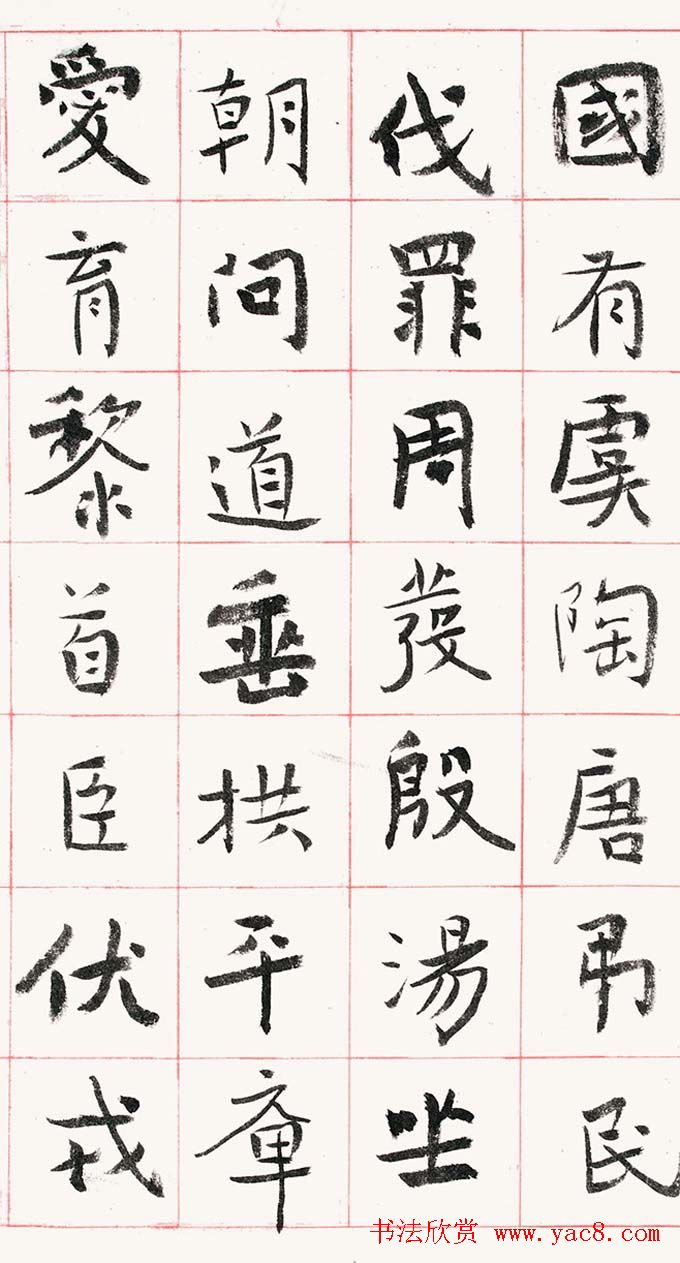 國有虞陶唐弔民
伐罪周發殷湯坐
朝問道垂拱平章
愛育黎首臣伏戎
书法欣赏 www.yac8.com